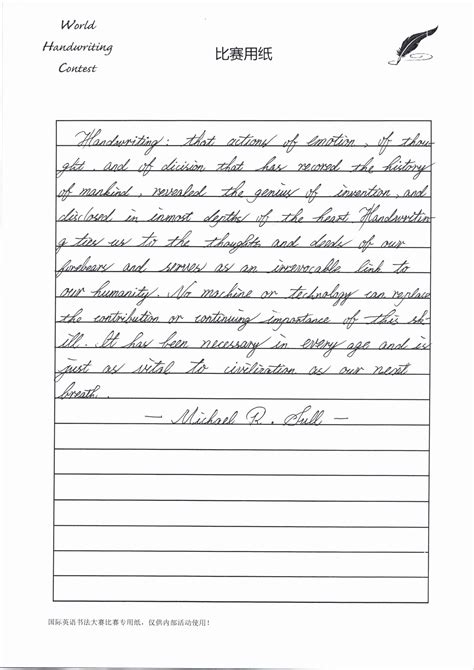 World
Handwriting
Contest
比赛用纸
Handwriting: that actions of emotion, of thou
ght, and of decision that has recored the history
of mankind, revealed the genius of invention, and
disclosed in inmost depths of the heart. Handwritin
g ties us to the thoughts and deeds of our
forebears and serves as an irrevocable link to
our humanity. No machine or technology can replace
the contribution or continuing importance of this sk
ill. It has been necessary in every age and is
just as vital to civilization as our next
breath.
— Michael R. Sull —
国际英语书法大赛比赛专用纸，仅供内部活动使用！